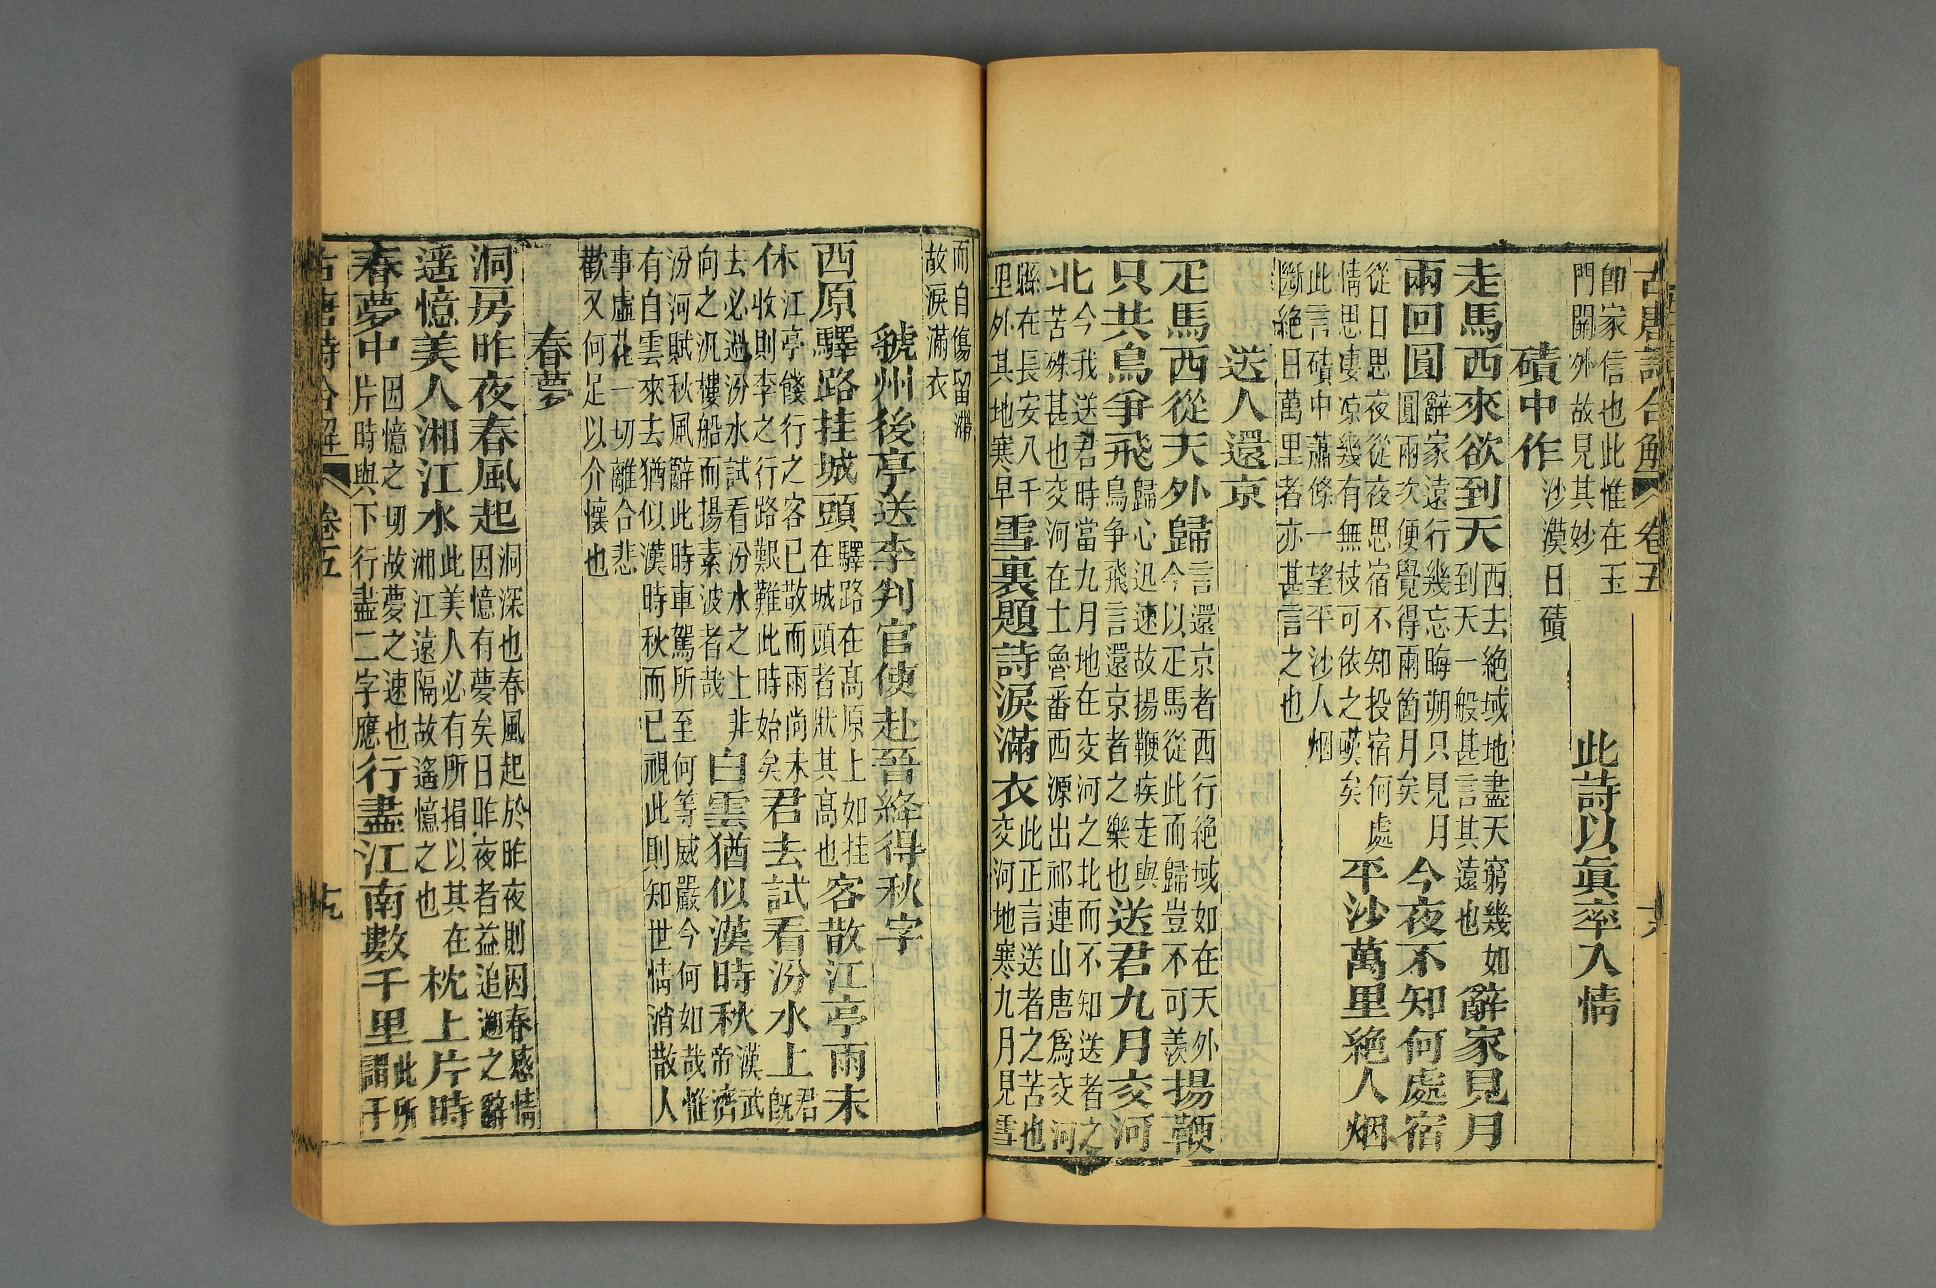 古唐詩合解 卷五
卽家信也此惟在玉
門關外故見其妙
此詩以眞率入情
磧中作 沙漠曰磧
走馬西來欲到天
西去絕域地盡天窮幾如
到天一般甚言其遠也
辭家見月
兩回圓
辭家遠行幾忘晦朔只見月
圓兩次便覺得兩箇月矣
今夜不知何處宿
從日思夜從夜思宿不知投宿何處
情思凄凉幾有無枝可依之嘆矣
平沙萬里絕人烟
此言磧中蕭條一望平沙人烟
斷絕曰萬里者亦甚言之也
送人還京
疋馬西從天外歸
言還京者西行絕域如在天外
今以疋馬從此而歸豈不可羨
揚鞭
只共鳥爭飛
歸心迅速故揚鞭疾走與
鳥争飛言還京者之樂也
送君九月交河
北
今我送君時當九月地在交河之北而不知送者之
苦殊甚也交河在土魯番西源出祁連山唐爲交河
縣在長安八千
里外其地寒早
雪裏題詩淚滿衣
此正言送者之苦也
交河地寒九月見雪
而自傷留滯
故淚滿衣
虢州後亭送李判官使赴晉絳得秋字
西原驛路挂城頭
驛路在高原上如挂
在城頭者狀其高也
客散江亭雨未
休
江亭餞行之客已散而雨尚未
收則李之行路艱難此時始矣
君去試看汾水上
君
旣
去必過汾水試看汾水之上非
向之汎樓船而揚素波者哉
白雲猶似漢時秋
漢武
帝濟
汾河賦秋風辭此時車駕所至何等威嚴今何如哉惟
有自雲來去猶似漢時秋而已視此則知世情消散人
事虛花一切離合悲
歡又何足以介懷也
春夢
洞房昨夜春風起
洞深也春風起於昨夜則因春感情
因憶有夢矣曰昨夜者益追遡之辭
遥憶美人湘江水
此美人必有所指以其在
湘江遠隔故遙憶之也
枕上片時
春夢中
因憶之切故夢之速也
片時與下行盡二字應
行盡江南數千里
此所
謂于
古唐詩合解 卷五 十九